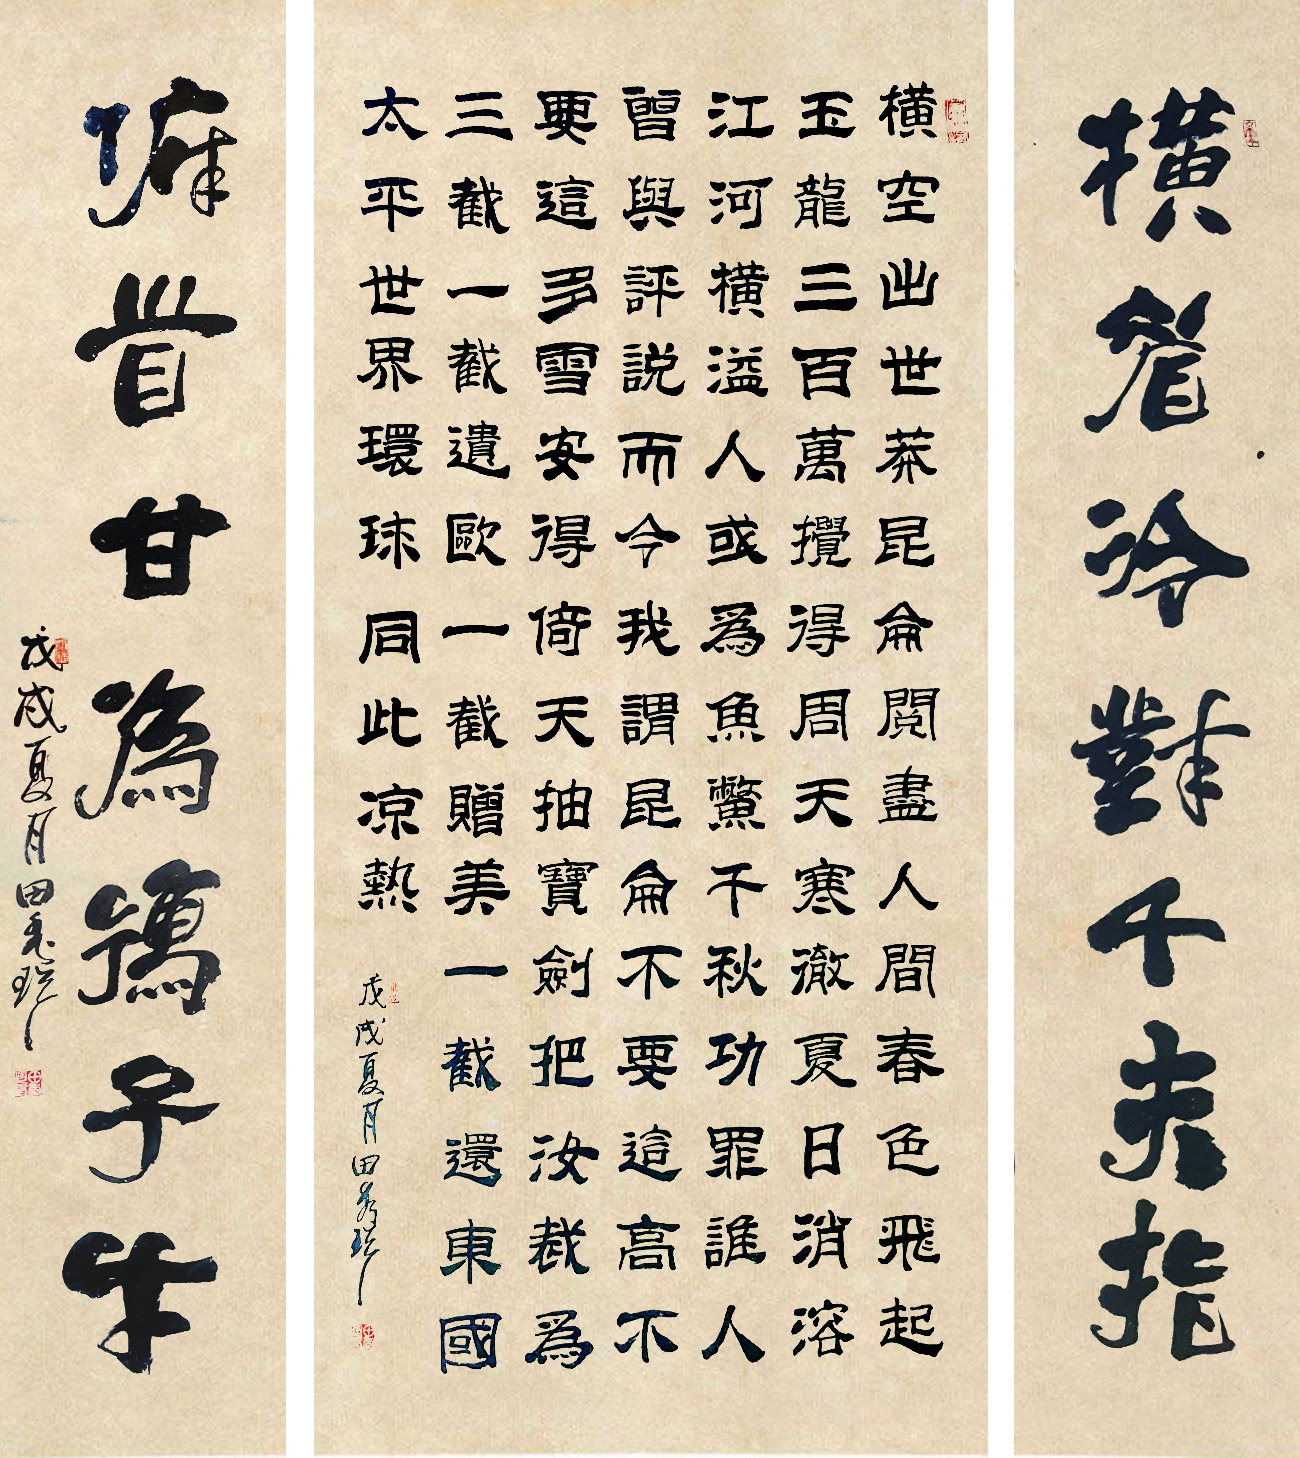 橫眉冷對千夫指
橫空出世莽昆侖閱盡人間春色飛起
玉龍三百萬攪得周天寒徹夏日消溶
江河橫溢人或爲魚鱉千秋功罪誰人
曾與評説而今我謂昆侖不要這高不
要這多雪安得倚天抽寶劍把汝裁爲
三截一截遺歐一截贈美一截還東國
太平世界環球同此凉熱
戊戌夏月田秀
俯首甘爲孺子牛
戊戌夏月田秀